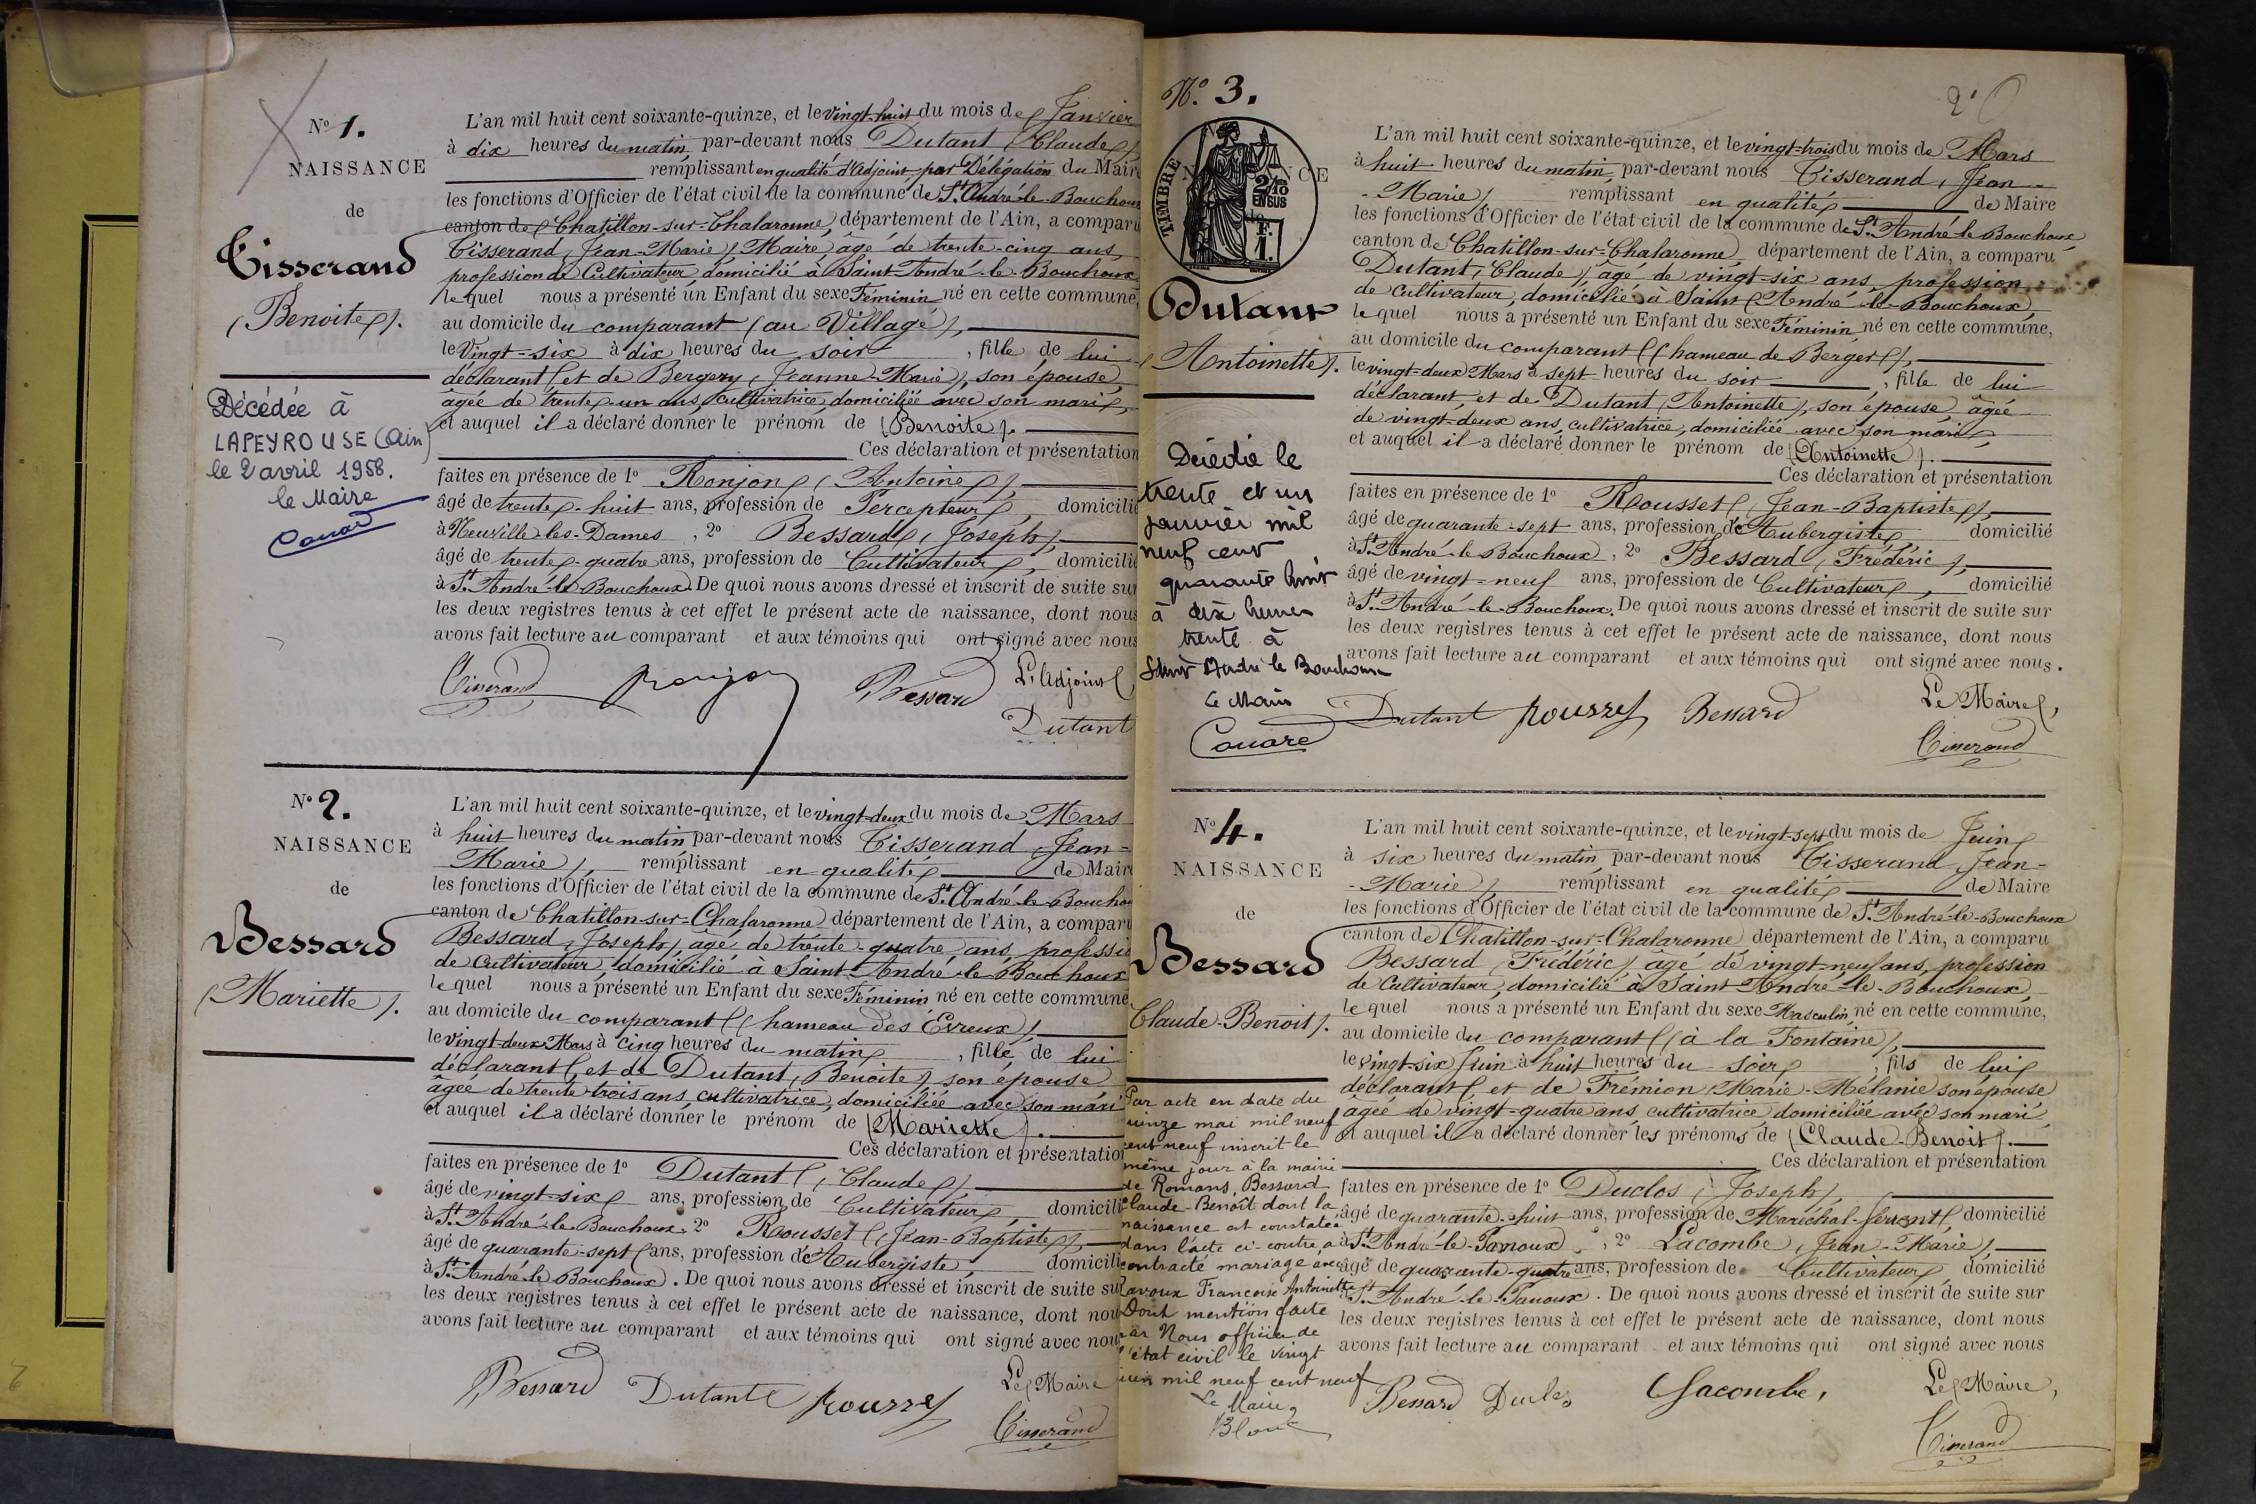 N° 1.
NAISSANCE
de
Tisserand
(Benoite).
Décédée à
LAPEYROUSE (Ain)
le 2 avril 1958.
le Maire
Couard
L'an mil huit cent soixante-quinze, et le vingt-huit du mois de Janvier
à dix heures du matin par-devant nous Dutant (Claude)
remplissant en qualité d'Adjoint par Délégation du Maire
les fonctions d'Officier de l'état civil de la commune de St. André-le-Bouchoux
canton de Chatillon-sur-Chalaronne, département de l'Ain, a comparu
Tisserand (Jean-Marie) Maire âgé de trente-cinq ans,
profession de Cultivateur domicilié à Saint-André-le-Bouchoux
lequel nous a présenté un Enfant du sexe Féminin né en cette commune,
au domicile du comparant (au Village),
le Vingt-six à dix heures du soir, fille de lui
déclarant et de Bergery (Jeanne-Marie), son épouse,
âgée de trente-un ans, cultivatrice, domiciliée avec son mari,
et auquel il a déclaré donner le prénom de (Benoite).
Ces déclaration et présentation
faites en présence de 1° Ronjon (Antoine),
âgé de trente-huit ans, profession de Percepteur, domicilié
à Neuville-les-Dames, 2° Bessard (Joseph),
âgé de trente-quatre ans, profession de Cultivateur, domicilié
à St. André-le-Bouchoux. De quoi nous avons dressé et inscrit de suite sur
les deux registres tenus à cet effet le présent acte de naissance, dont nous
avons fait lecture au comparant et aux témoins qui ont signé avec nous
Tisserand Ronjon Bessard L'Adjoint,
Dutant
N° 2.
NAISSANCE
de
Bessard
(Mariette).
L'an mil huit cent soixante-quinze, et le vingt-deux du mois de Mars
à huit heures du matin par-devant nous Tisserand (Jean-
Marie), remplissant en qualité de Maire
les fonctions d'Officier de l'état civil de la commune de St. André-le-Boucho
canton de Chatillon-sur-Chalaronne département de l'Ain, a comparu
Bessard (Joseph) âgé de trente-quatre ans, professio
de Cultivateur, domicilié à Saint-André-le-Bouchoux
lequel nous a présenté un Enfant du sexe Féminin né en cette commune,
au domicile du comparant (hameau des Évreux)
le vingt-deux Mars à cinq heures du matin, fille de lui
déclarant et de Dutant (Benoite) son épouse
âgée de trente-trois ans, cultivatrice, domiciliée avec son mari
et auquel il a déclaré donner le prénom de (Mariette).
Ces déclaration et présentation
faites en présence de 1° Dutant (Claude)
âgé de vingt-six ans, profession de Cultivateur, domicilié
à St. André-le-Bouchoux 2° Rousset (Jean-Baptiste),
âgé de quarante-sept ans, profession d'Aubergiste, domicilié
à St. André-le-Bouchoux. De quoi nous avons dressé et inscrit de suite su
les deux registres tenus à cet effet le présent acte de naissance, dont nou
avons fait lecture au comparant et aux témoins qui ont signé avec nou
Bessard Dutant Rousset Le Maire
Tisserand
N° 3.
TIMBRE
2/10
EN SUS
F.
1.
Dutant
(Antoinette).
Décédée le
trente et un
janvier mil
neuf cent
quarante huit
à dix heures
trente à
Saint André le Bouchoux
Le Maire
Couard
L'an mil huit cent soixante-quinze, et le vingt-trois du mois de Mars
à huit heures du matin par-devant nous Tisserand, Jean-
-Marie), remplissant en qualité de Maire
les fonctions d'Officier de l'état civil de la commune de St. André-le-Bouchoux
canton de Chatillon-sur-Chalaronne, département de l'Ain, a comparu
Dutant (Claude) âgé de vingt-six ans, profession
de cultivateur, domicilié à Saint André-le-Bouchoux,
lequel nous a présenté un Enfant du sexe Féminin né en cette commune,
au domicile du comparant (hameau de Berger),
le vingt-deux Mars à sept heures du soir, fille de lui
déclarant, et de Dutant (Antoinette), son épouse, âgée
de vingt-deux ans, cultivatrice, domiciliée avec son mari,
et auquel il a déclaré donner le prénom de (Antoinette).
Ces déclaration et présentation
faites en présence de 1° Rousset (Jean-Baptiste),
âgé de quarante-sept ans, profession d'Aubergiste, domicilié
à St. André-le-Bouchoux, 2° Bessard (Frédéric),
âgé de vingt-neuf ans, profession de Cultivateur, domicilié
à St. André-le-Bouchoux. De quoi nous avons dressé et inscrit de suite sur
les deux registres tenus à cet effet le présent acte de naissance, dont nous
avons fait lecture au comparant et aux témoins qui ont signé avec nous.
Dutant Rousset Bessard Le Maire,
Tisserand
N° 4.
NAISSANCE
de
Bessard
Claude-Benoit).
Par acte en date du
uinze mai mil neuf
cent neuf inscrit le
même jour à la mairie
de Romans, Bessard
Claude-Benoît dont la
naissance est constatée
dans l'acte ci-contre, a
contracté mariage avec
Ravoux Françoise Antoinette
Dont mention faite
par Nous officier de
l'état civil le vingt
uin mil neuf cent neuf
Le Maire
Blanc
L'an mil huit cent soixante-quinze, et le vingt-sept du mois de Juin
à six heures du matin, par-devant nous Tisserand, Jean-
-Marie), remplissant en qualité de Maire
les fonctions d'Officier de l'état civil de la commune de St. André-le-Bouchoux
canton de Chatillon-sur-Chalaronne département de l'Ain, a comparu
Bessard (Frédéric) âgé de vingt-neuf ans, profession
de Cultivateur, domicilié à Saint André-le-Bouchoux,
lequel nous a présenté un Enfant du sexe Masculin, né en cette commune,
au domicile du comparant (à la Fontaine),
le vingt-six Juin à huit heures du soir, fils de lui
déclarant et de Frémion Marie-Mélanie son épouse
âgée de vingt-quatre ans cultivatrice domiciliée avec son mari,
et auquel il a déclaré donner les prénoms de (Claude-Benoit).
Ces déclaration et présentation
faites en présence de 1° Duclos (Joseph),
âgé de quarante-huit ans, profession de Maréchal-ferrant, domicilié
à St. André-le-Panoux, 2° Lacombe (Jean-Marie),
âgé de quarante-quatre ans, profession de Cultivateur, domicilié
à St. André-le-Panoux. De quoi nous avons dressé et inscrit de suite sur
les deux registres tenus à cet effet le présent acte de naissance, dont nous
avons fait lecture au comparant et aux témoins qui ont signé avec nous
Bessard Duclos Lacombe, Le Maire,
Tisserand